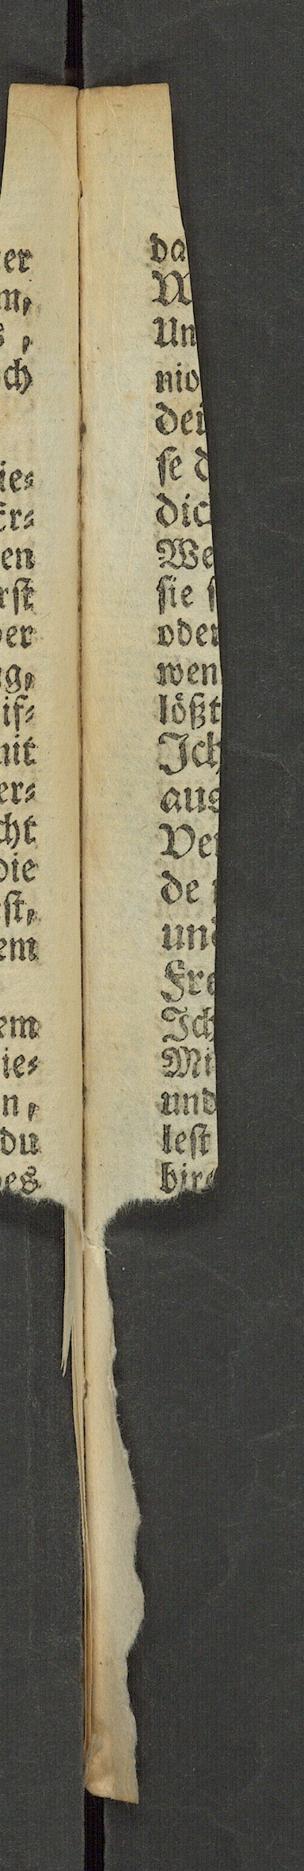 er
m,
s,
ch
ie⸗
Er⸗
en
rst
er
g,
if⸗
nit
er⸗
cht
die
st,
em
em
ie⸗
n,
du
es
da
Un
nio
dei
se d
dic
We
sie s
oder
wen
lößt
Ich
aus
Ver
de
und
Fre
Ich
Mi
und
lest
bire